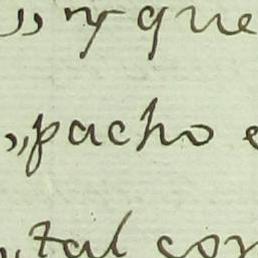 „ y que
„pacho e
„tal con